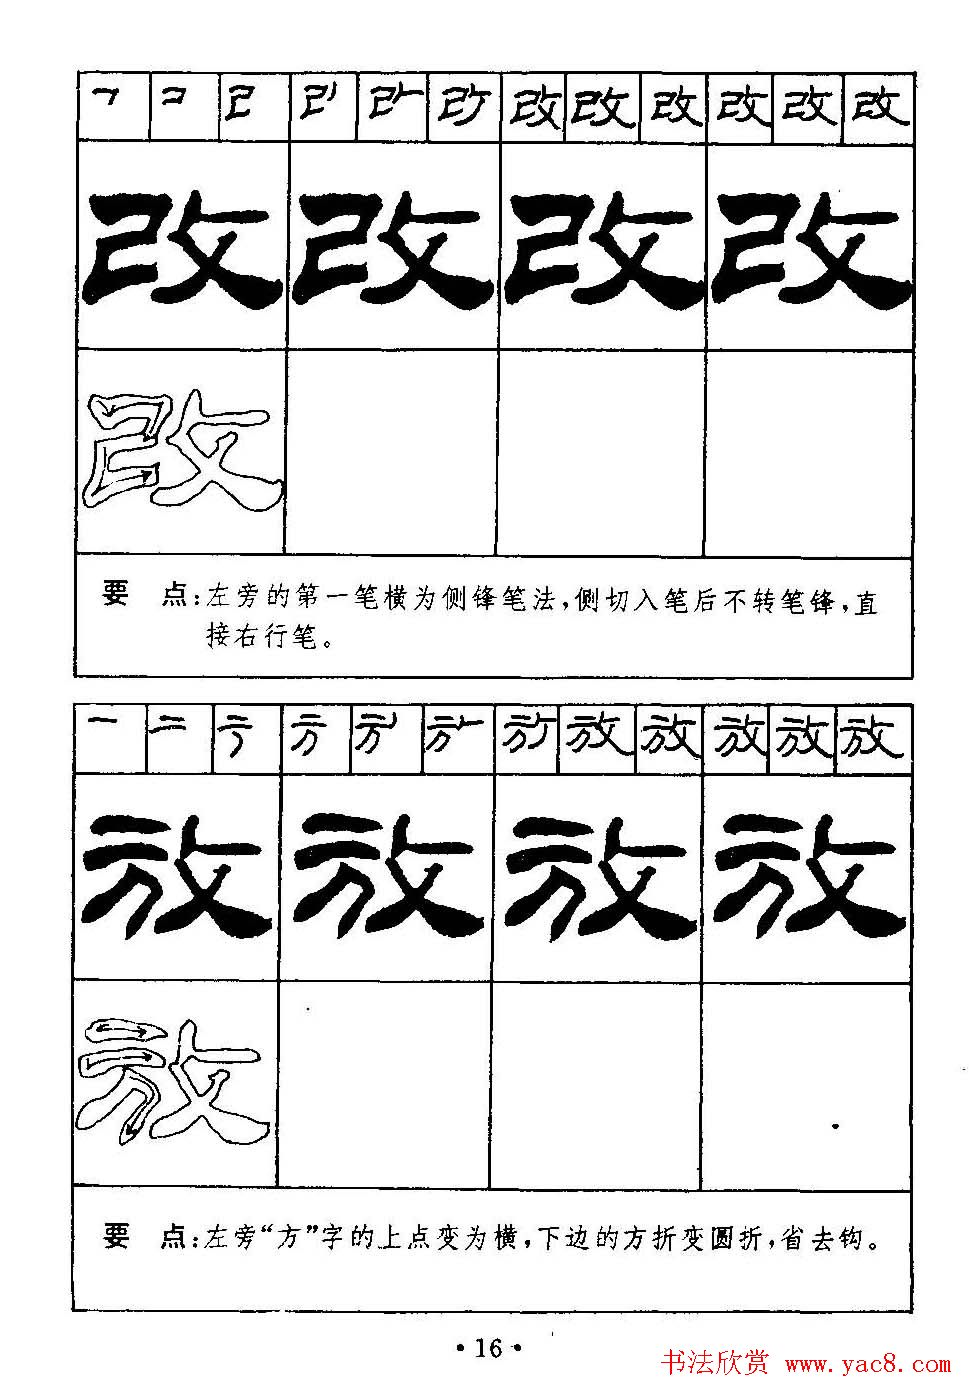 ㇕ コ 己 改 改 改 改 改 改
改 改 改 改
改
要 点:左旁的第一笔横为侧锋笔法,侧切入笔后不转笔锋,直
接右行笔。
一 二 放 放 放 放 放 放
放 放 放 放
放
要 点:左旁“方”字的上点变为横,下边的方折变圆折,省去钩。
·16·
书法欣赏 www.yac8.com